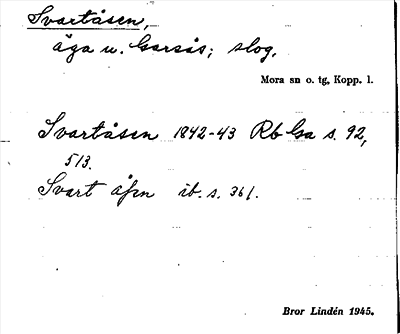 Svartåsen,
äga u. Garsås; skog.
Mora sn o. tg, Kopp. l.
Svartåsen 1842-43 Rb Ga s. 92,
513.
Svart åsen ib. s. 361.
Bror Lindén 1945.